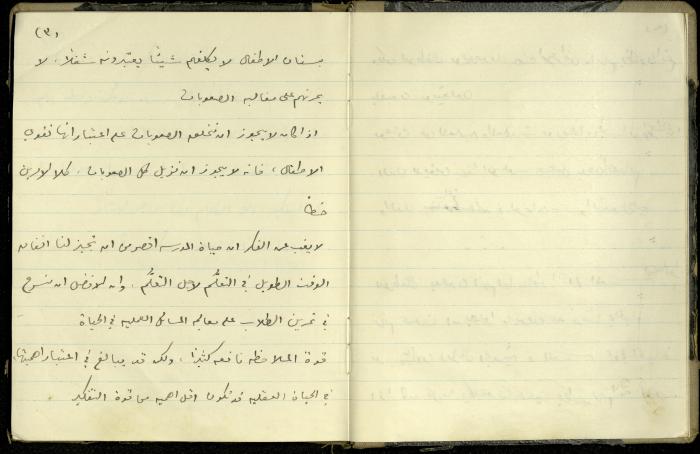 (٣)
بستان الاطفال لا يكلفهم شيئاً يعتبرونه شغلاً، لا
يمرنهم على مغالبة الصعوبات
اذا كان لا يجوز ان نخلق الصعوبات على اعتبار انها تقوي
الاطفال، فانه لا يجوز ان نزيل كل الصعوبات، كلا الامرين
خطأ
لا يغب عن الفكر ان حياة المدرسه اقصر من ان تجيز لنا انفاق
الوقت الطويل في التعلُّم لاجل التعلُّم. وانه لافضل ان نسرع
في تمرين الطلاب على معالجة المسائل العمليه في الحياة
قوة الملاحظه نافعه كثيراً، ولكن قد يبالغ في اعتبار اهميتها،
في الحياة العقليه قد تكون اقل اهميه من قوة التفكير